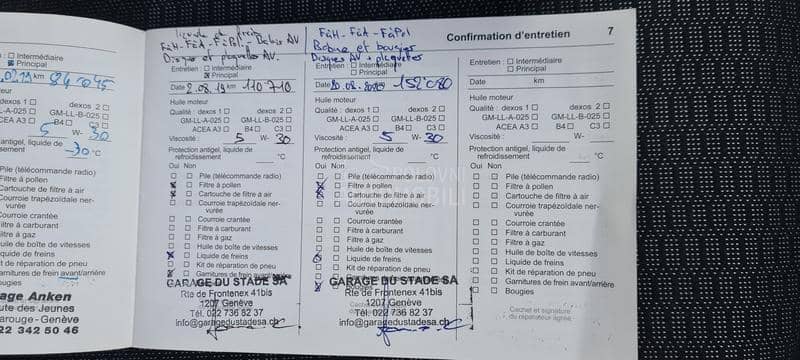 Confirmation d'entretien 7
n : ☐ Intermédiaire
☒ Principal
.02.19 km 84 045
Huile moteur
dexos 1 ☐ dexos 2 ☐
M-LL-A-025 ☐ GM-LL-B-025 ☐
ACEA A3 ☐ B4 ☐ C3 ☐
5 W- 30
antigel, liquide de
-30 °C
Pile (télécommande radio)
Filtre à pollen
Cartouche de filtre à air
Courroie trapézoïdale ner-
vurée
Courroie crantée
Filtre à carburant
Filtre à gaz
Huile de boîte de vitesses
Liquide de freins
Kit de réparation de pneu
Garnitures de frein avant/arrière
Bougies
age Anken
ute des Jeunes
arouge - Genève
22 342 50 46
Liquide de frein
FàH-FàA-FàPol
Disques et plaquettes AV.
Entretien : ☐ Intermédiaire
☒ Principal
Date 2.08.19 km 110'710
Huile moteur
Qualité : dexos 1 ☐ dexos 2 ☐
GM-LL-A-025 ☐ GM-LL-B-025 ☐
ACEA A3 ☐ B4 ☐ C3 ☐
Viscosité : 5 W- 30
Protection antigel, liquide de
refroidissement °C
Oui Non
☐ ☐ Pile (télécommande radio)
☒ ☐ Filtre à pollen
☒ ☐ Cartouche de filtre à air
☐ ☐ Courroie trapézoïdale ner-
vurée
☐ ☐ Courroie crantée
☐ ☐ Filtre à carburant
☐ ☐ Filtre à gaz
☐ ☐ Huile de boîte de vitesses
☒ ☐ Liquide de freins
☐ ☐ Kit de réparation de pneu
☒ ☐ Garnitures de frein avant/arrière
GARAGE DU STADE SA
Rte de Frontenex 41bis
1207 Genève
Tél. 022 736 82 37
info@garagedustadesa.ch
FàH - FàA - FàPol
Bobine et bougies
Disques AV + plaquettes
Entretien : ☐ Intermédiaire
☐ Principal
Date km 152'080
Huile moteur
Qualité : dexos 1 ☐ dexos 2 ☐
GM-LL-A-025 ☐ GM-LL-B-025 ☐
ACEA A3 ☐ B4 ☐ C3 ☐
Viscosité : 5 W- 30
Protection antigel, liquide de
refroidissement °C
Oui Non
☐ ☐ Pile (télécommande radio)
☒ ☐ Filtre à pollen
☒ ☐ Cartouche de filtre à air
☐ ☐ Courroie trapézoïdale ner-
vurée
☐ ☐ Courroie crantée
☐ ☐ Filtre à carburant
☐ ☐ Filtre à gaz
☐ ☐ Huile de boîte de vitesses
☒ ☐ Liquide de freins
☐ ☐ Kit de réparation de pneu
Garnitures de frein avant/arrière
Bougies
GARAGE DU STADE SA
Rte de Frontenex 41bis
1207 Genève
Tél. 022 736 82 37
info@garagedustadesa.ch
Entretien : ☐ Intermédiaire
☐ Principal
Date km
Huile moteur
Qualité : dexos 1 ☐ dexos 2 ☐
GM-LL-A-025 ☐ GM-LL-B-025 ☐
ACEA A3 ☐ B4 ☐ C3 ☐
Viscosité : W-
Protection antigel, liquide de
refroidissement °C
Oui Non
☐ ☐ Pile (télécommande radio)
☐ ☐ Filtre à pollen
☐ ☐ Cartouche de filtre à air
☐ ☐ Courroie trapézoïdale ner-
vurée
☐ ☐ Courroie crantée
☐ ☐ Filtre à carburant
☐ ☐ Filtre à gaz
☐ ☐ Huile de boîte de vitesses
☐ ☐ Liquide de freins
☐ ☐ Kit de réparation de pneu
☐ ☐ Garnitures de frein avant/arrière
☐ ☐ Bougies
Cachet et signature
du réparateur agréé